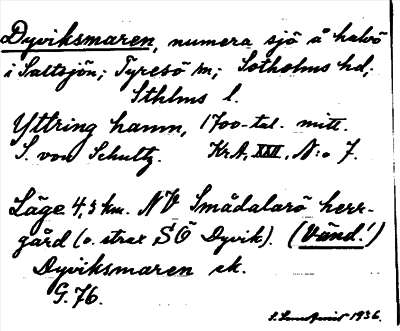 Dyviksmaren, numera sjö å halvö
i Saltsjön; Tyresö sn; Sotholms hd;
Sthlms l.
Yttring hamn, 1700-tal. mitt.
S. von Schultz. KrA, XXII, N:o 7.
Läge 4,3 km. NV Smådalarö herr-
gård (o. strax SÖ Dyvik). (Vänd!)
Dyviksmaren ek.
G. 76.
1936.